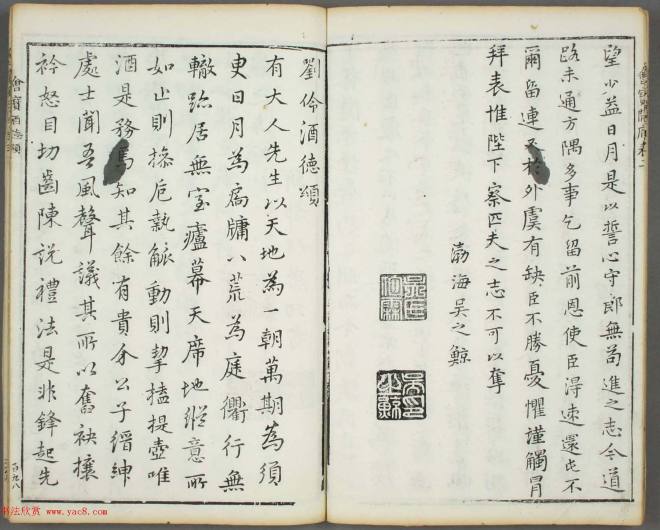 望少益日月是以誓心守郎無苟進之志今道
路未通方隅多事乞留前恩使臣得速還屯不
爾留連於外虞有缺臣不勝憂懼謹觸冒
拜表惟陛下察匹夫之志不可以奪
渤海吳之鯨
劉伶酒德頌
有大人先生以天地為一朝萬期為須
臾日月為扃牖八荒為庭衢行無
轍跡居無室廬幕天席地縱意所
如止則操巵執觚動則挈榼提壺唯
酒是務焉知其餘有貴介公子縉紳
處士聞吾風聲議其所以奮袂攘
衿怒目切齒陳說禮法是非鋒起先
書法欣賞 www.yac8.com